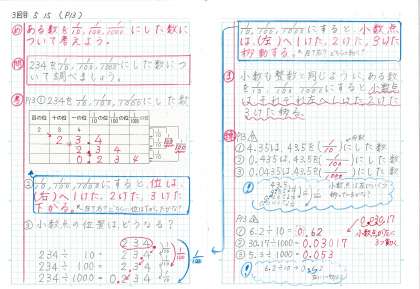 3回目 5/15 (P13)
め ある数を1/10, 1/100, 1/1000にした数に
ついて考えよう。
問 234を1/10, 1/100, 1/1000にした数につ
いて調べましょう。
考 P13 ① 234を1/10, 1/100, 1/1000にした数
百の位 十の位 一の位 1/10の位 1/100の位 1/1000の位
2 3 4
2 3 4
0 2 3 4
② 1/10, 1/100, 1/1000にすると、位は、
(右)へ1けた、2けた、3けた
下がる。
③ 小数点の位置は、どうなる?
234
234÷10 =
234÷100 =
234÷1000 = 0.234
1/10, 1/100, 1/1000にすると、小数点
は、(左)へ1けた、2けた、3けた
移動する。
ま 小数も整数と同じように、ある数
を1/10, 1/100, 1/1000にすると、小数点
はそれぞれ左へ1けた、2けた
3けた移る。
P13
① 4.35は、43.5を(1/10)にした数
② 0.435は、43.5を(1/100)にした数
③ 0.0435は、43.5を(1/1000)にした数
P13
① 6.2÷10 = 0.62
② 30.17÷1000 = 0.03017
③ 5.3÷100 = 0.053
小数点が左に
3つ動く